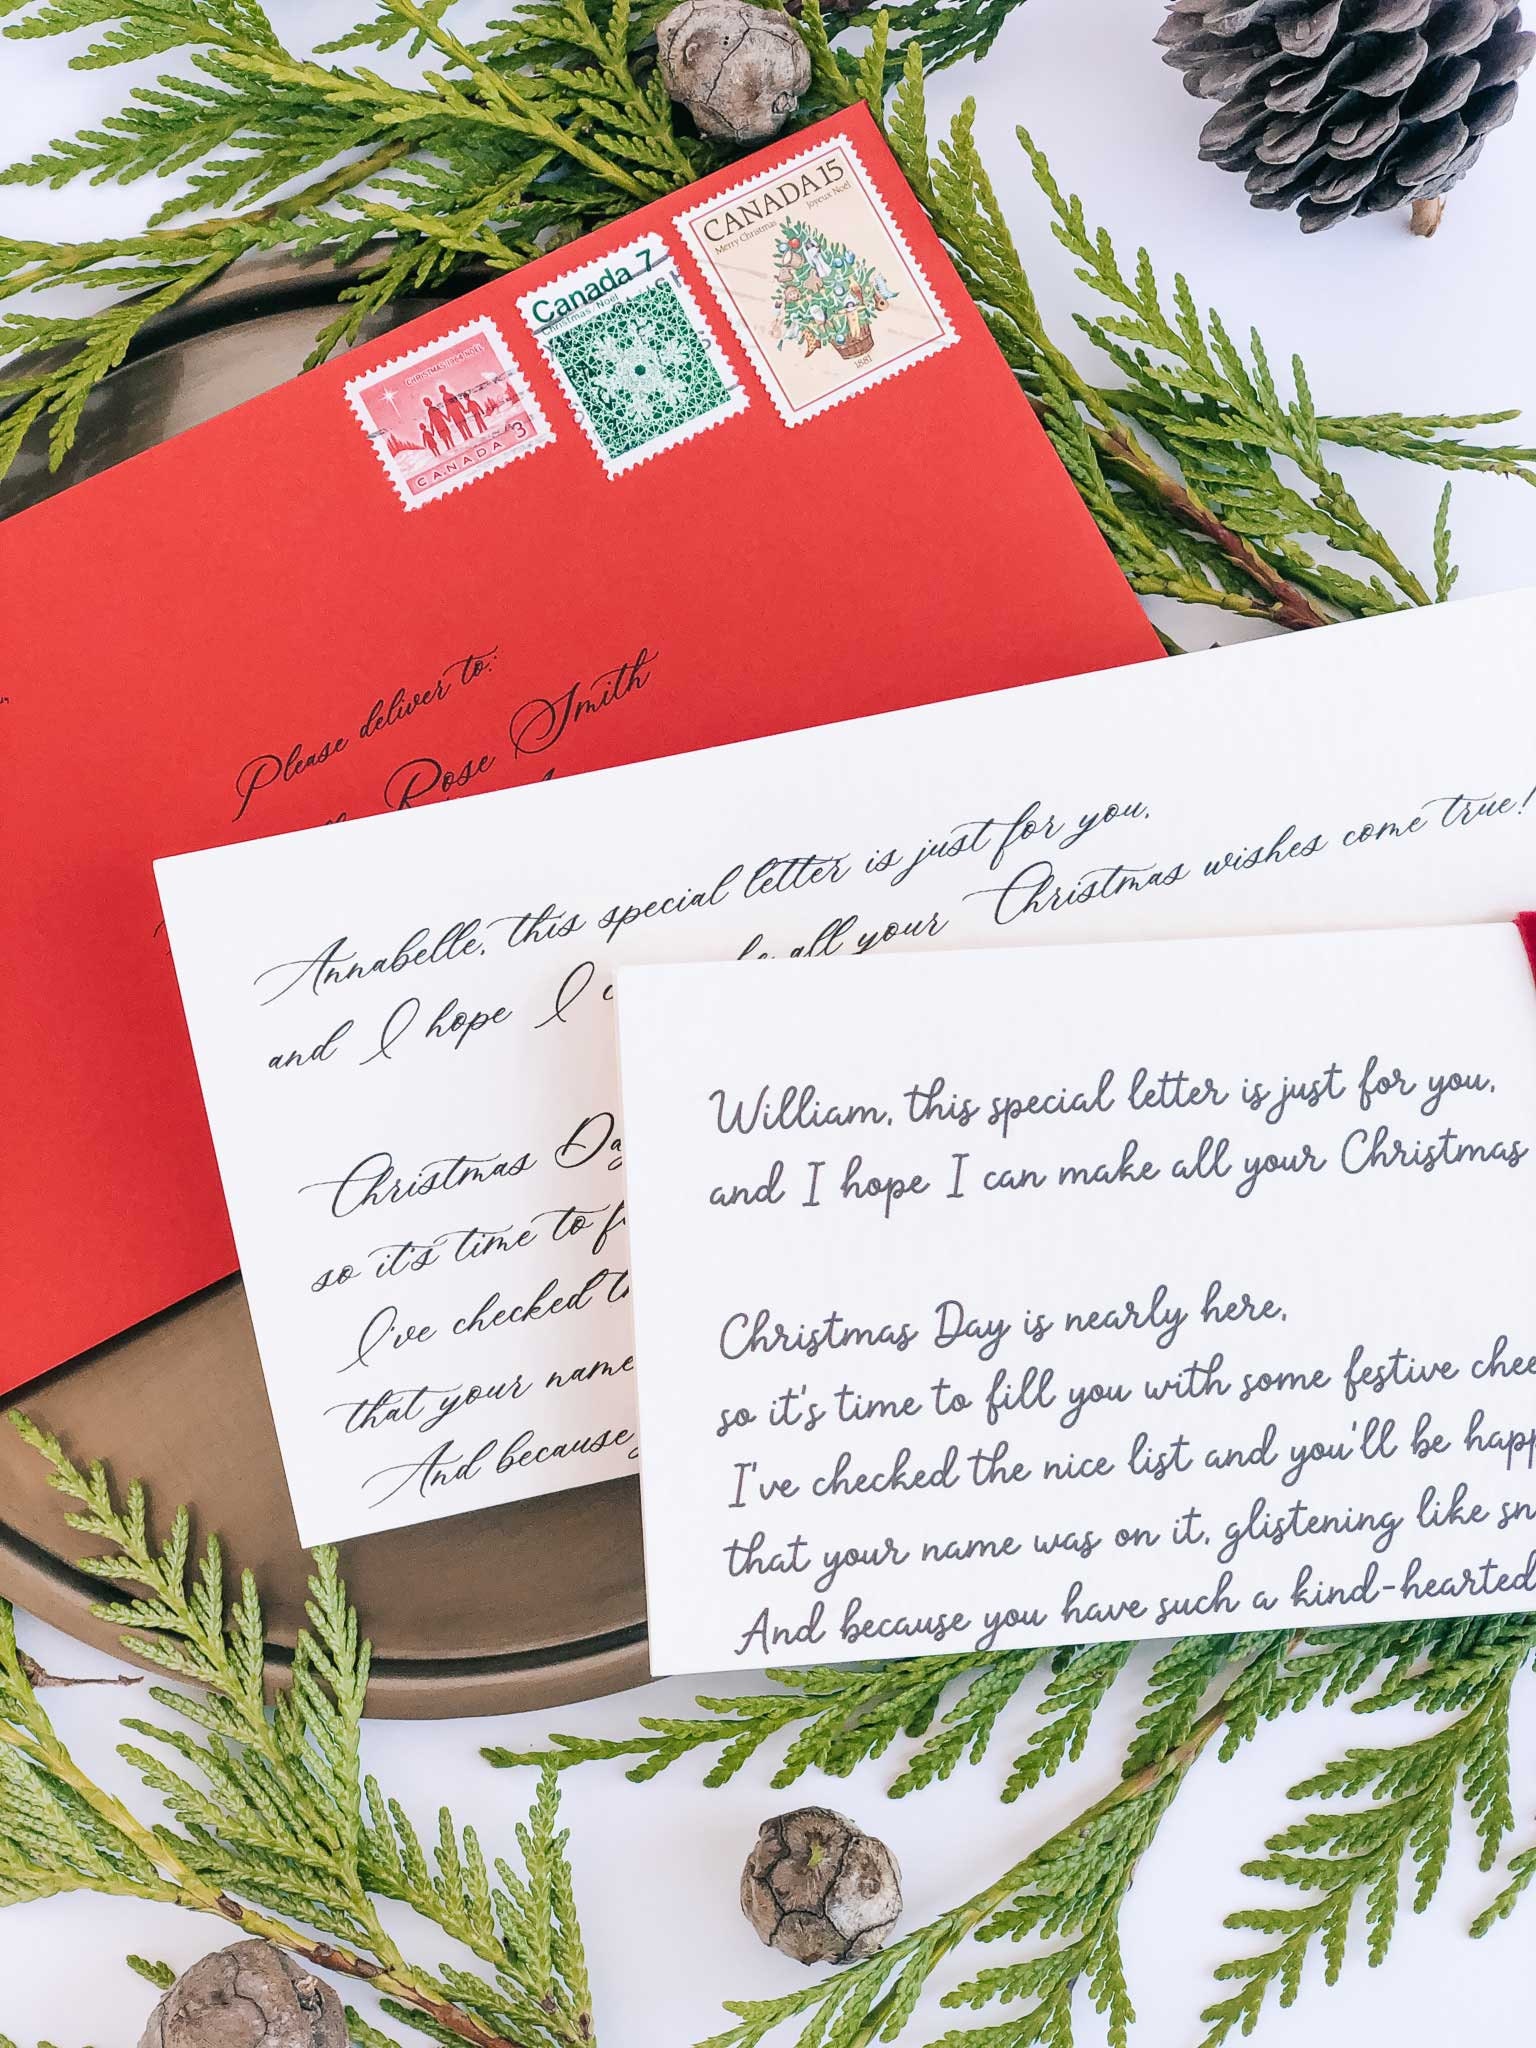 CHRISTMAS 1964 NOËL
CANADA 3
Canada 7
Christmas/Noël
CANADA 15
Merry Christmas Joyeux Noël
1881
Please deliver to:
Rose Smith
Annabelle, this special letter is just for you,
and I hope I all your Christmas wishes come true!
Christmas Day
so it's time to
I've checked
that your name
And because
William, this special letter is just for you,
and I hope I can make all your Christmas
Christmas Day is nearly here,
so it's time to fill you with some festive chee
I've checked the nice list and you'll be happ
that your name was on it, glistening like sn
And because you have such a kind-hearted